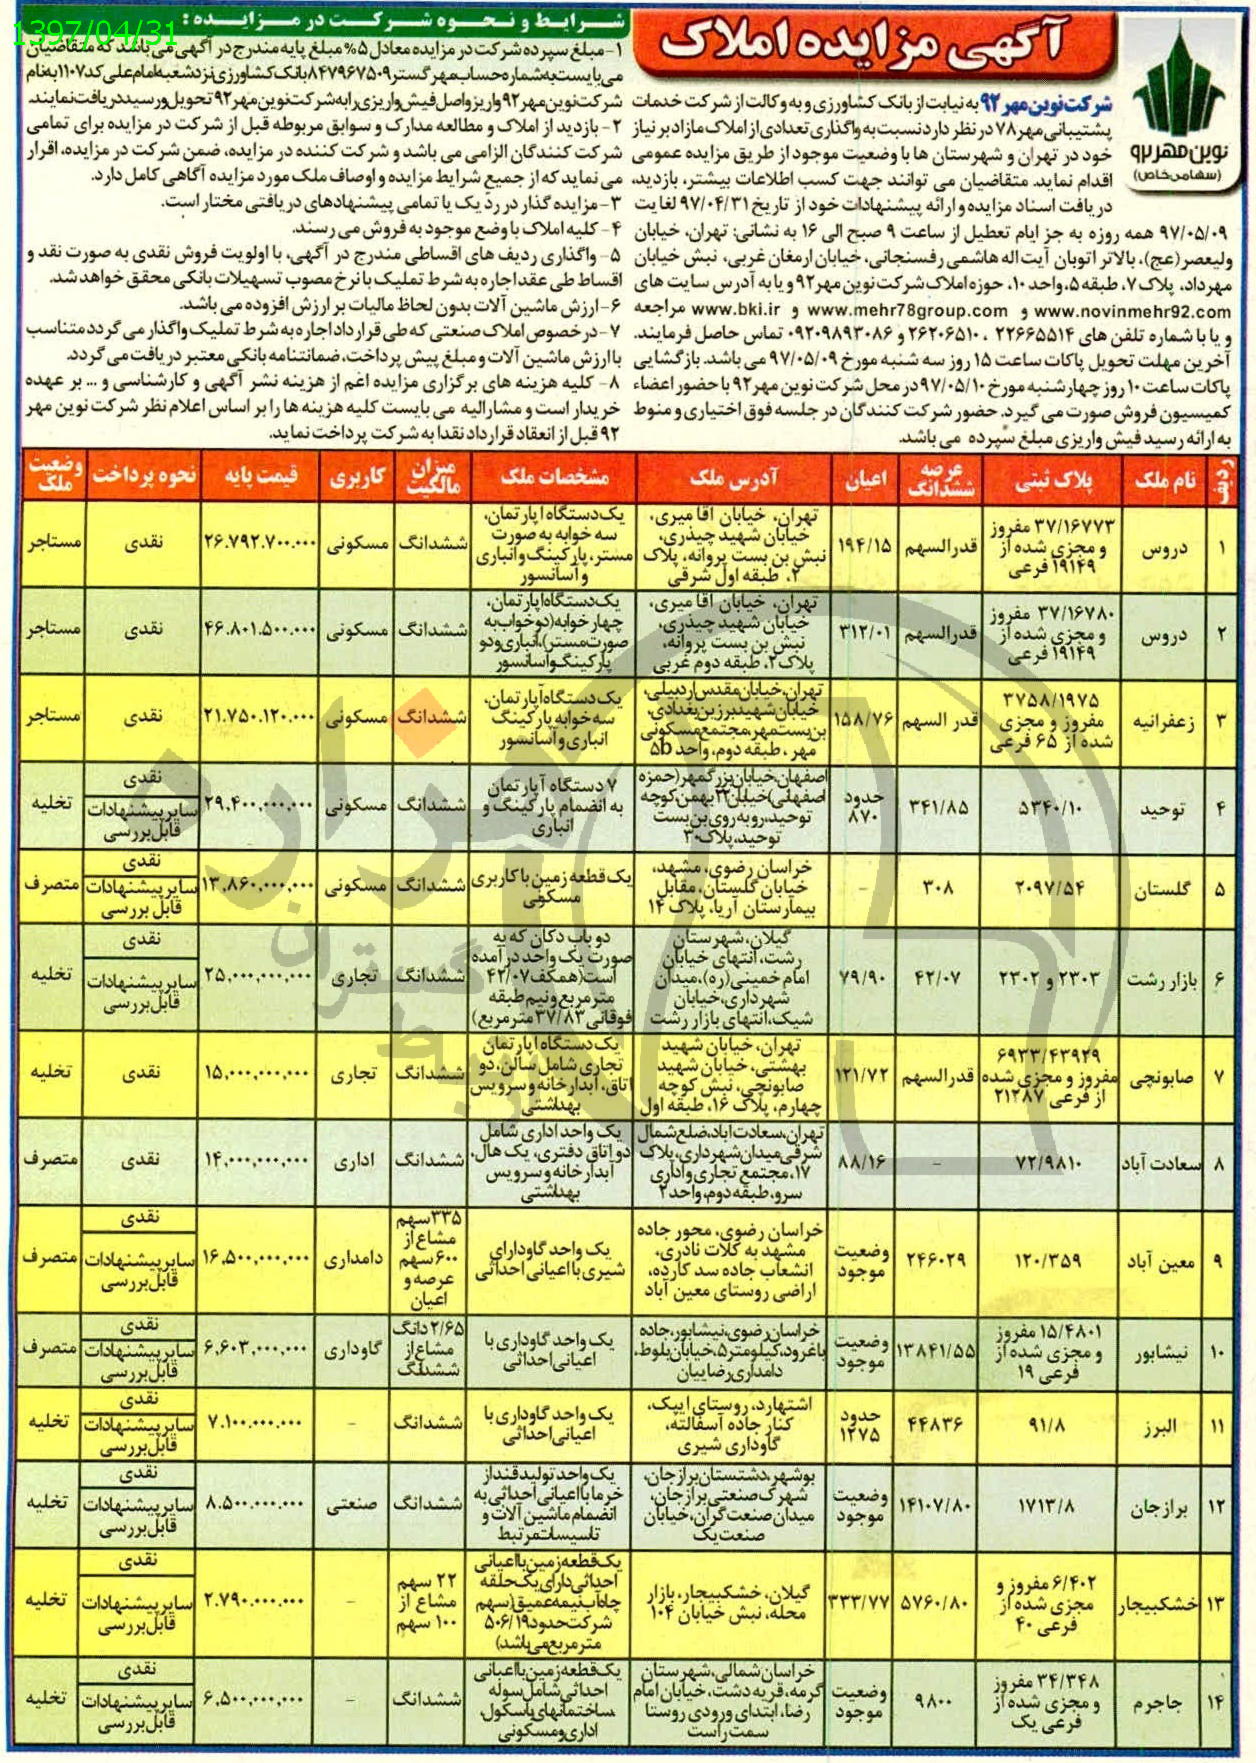 1397/04/31
آگهی مزایده املاک
نوین مهر ۹۲
(سهامی خاص)
شرکت نوین مهر ۹۲ به نیابت از بانک کشاورزی و به وکالت از شرکت خدمات
پشتیبانی مهر ۷۸ در نظر دارد نسبت به واگذاری تعدادی از املاک مازاد بر نیاز
خود در تهران و شهرستان ها با وضعیت موجود از طریق مزایده عمومی
اقدام نماید. متقاضیان می توانند جهت کسب اطلاعات بیشتر، بازدید،
دریافت اسناد مزایده و ارائه پیشنهادات خود از تاریخ ۹۷/۰۴/۳۱ لغایت
۹۷/۰۵/۰۹ همه روزه به جز ایام تعطیل از ساعت ۹ صبح الی ۱۶ به نشانی: تهران، خیابان
ولیعصر(عج)، بالاتر اتوبان آیت اله هاشمی رفسنجانی، خیابان ارمغان غربی، نبش خیابان
مهرداد، پلاک ۷، طبقه ۵، واحد ۱۰، حوزه املاک شرکت نوین مهر ۹۲ و یا به آدرس سایت های
www.novinmehr92.com و www.mehr78group.com و www.bki.ir مراجعه
و یا با شماره تلفن های ۲۲۶۶۵۵۱۴ ، ۲۶۲۰۶۵۱۰ و ۰۹۲۰۹۸۹۳۰۸۶ تماس حاصل فرمایند.
آخرین مهلت تحویل پاکات ساعت ۱۵ روز سه شنبه مورخ ۹۷/۰۵/۰۹ می باشد. بازگشایی
پاکات ساعت ۱۰ روز چهارشنبه مورخ ۹۷/۰۵/۱۰ در محل شرکت نوین مهر ۹۲ با حضور اعضاء
کمیسیون فروش صورت می گیرد. حضور شرکت کنندگان در جلسه فوق اختیاری و منوط
به ارائه رسید فیش واریزی مبلغ سپرده می باشد.
شرایط و نحوه شرکت در مزایده :
۱- مبلغ سپرده شرکت در مزایده معادل ۵% مبلغ پایه مندرج در آگهی می باشد که متقاضیان
می بایست به شماره حساب مهر گستر ۸۴۷۹۶۷۵۰۹ بانک کشاورزی نزد شعبه امام علی کد ۱۱۰۷ به نام
شرکت نوین مهر ۹۲ واریز و اصل فیش واریزی را به شرکت نوین مهر ۹۲ تحویل و رسید دریافت نمایند.
۲- بازدید از املاک و مطالعه مدارک و سوابق مربوطه قبل از شرکت در مزایده برای تمامی
شرکت کنندگان الزامی می باشد و شرکت کننده در مزایده، ضمن شرکت در مزایده، اقرار
می نماید که از جمیع شرایط مزایده و اوصاف ملک مورد مزایده آگاهی کامل دارد.
۳- مزایده گذار در رد یک یا تمامی پیشنهادهای دریافتی مختار است.
۴- کلیه املاک با وضع موجود به فروش می رسند.
۵- واگذاری ردیف های اقساطی مندرج در آگهی، با اولویت فروش نقدی به صورت نقد و
اقساط طی عقد اجاره به شرط تملیک با نرخ مصوب تسهیلات بانکی محقق خواهد شد.
۶- ارزش ماشین آلات بدون لحاظ مالیات بر ارزش افزوده می باشد.
۷- در خصوص املاک صنعتی که طی قرارداد اجاره به شرط تملیک واگذار می گردد متناسب
با ارزش ماشین آلات و مبلغ پیش پرداخت، ضمانتنامه بانکی معتبر دریافت می گردد.
۸- کلیه هزینه های برگزاری مزایده اعم از هزینه نشر آگهی و کارشناسی و ... بر عهده
خریدار است و مشارالیه می بایست کلیه هزینه ها را بر اساس اعلام نظر شرکت نوین مهر
۹۲ قبل از انعقاد قرارداد نقدا به شرکت پرداخت نماید.
ردیف نام ملک پلاک ثبتی عرصه ششدانگ اعیان آدرس ملک مشخصات ملک میزان مالکیت کاربری قیمت پایه نحوه پرداخت وضعیت ملک
۱ دروس ۳۷/۱۶۷۷۳ مفروز و مجزی شده از ۱۹۱۴۹ فرعی قدرالسهم ۱۹۴/۱۵ تهران، خیابان آقا میری، خیابان شهید چیذری، نبش بن بست پروانه، پلاک ۲، طبقه اول شرقی یک دستگاه آپارتمان، سه خوابه به صورت مستر، پارکینگ و انباری و آسانسور ششدانگ مسکونی ۲۶.۷۹۲.۷۰۰.۰۰۰ نقدی مستاجر
۲ دروس ۳۷/۱۶۷۸۰ مفروز و مجزی شده از ۱۹۱۴۹ فرعی قدرالسهم ۳۱۲/۰۱ تهران، خیابان آقا میری، خیابان شهید چیذری، نبش بن بست پروانه، پلاک ۲، طبقه دوم غربی یک دستگاه آپارتمان، چهار خوابه(دو خواب به صورت مستر)، انباری و دو پارکینگ و آسانسور ششدانگ مسکونی ۴۶.۸۰۱.۵۰۰.۰۰۰ نقدی مستاجر
۳ زعفرانیه ۳۷۵۸/۱۹۷۵ مفروز و مجزی شده از ۶۵ فرعی قدر السهم ۱۵۸/۷۶ تهران، خیابان مقدس اردبیلی، خیابان شهید برزین بغدادی، بن بست مهر، مجتمع مسکونی مهر ، طبقه دوم، واحد 5b یک دستگاه آپارتمان، سه خوابه پارکینگ انباری و آسانسور ششدانگ مسکونی ۲۱.۷۵۰.۱۲۰.۰۰۰ نقدی مستاجر
۴ توحید ۵۳۴۰/۱۰ ۳۴۱/۸۵ حدود ۸۷۰ اصفهان، خیابان بزرگمهر(حمزه اصفهانی) خیابان ۲۲ بهمن، کوچه توحید، روبه روی بن بست توحید، پلاک ۳۰ ۷ دستگاه آپارتمان به انضمام پارکینگ و انباری ششدانگ مسکونی ۲۹,۴۰۰,۰۰۰,۰۰۰ نقدی سایر پیشنهادات قابل بررسی تخلیه
۵ گلستان ۲۰۹۷/۵۴ ۳۰۸ - خراسان رضوی، مشهد، خیابان گلستان، مقابل بیمارستان آریا، پلاک ۱۴ یک قطعه زمین با کاربری مسکونی ششدانگ مسکونی ۱۳,۸۶۰,۰۰۰,۰۰۰ نقدی سایر پیشنهادات قابل بررسی متصرف
۶ بازار رشت ۲۳۰۳ و ۲۳۰۲ ۴۲/۰۷ ۷۹/۹۰ گیلان، شهرستان رشت، انتهای خیابان امام خمینی(ره)، میدان شهرداری، خیابان شیک، انتهای بازار رشت دو باب دکان که به صورت یک واحد درآمده است(همکف ۴۲/۰۷ متر مربع و نیم طبقه فوقانی ۳۷/۸۳ متر مربع) ششدانگ تجاری ۲۵,۰۰۰,۰۰۰,۰۰۰ نقدی سایر پیشنهادات قابل بررسی تخلیه
۷ صابونچی ۶۹۳۳/۴۳۹۲۹ مفروز و مجزی شده از فرعی ۲۱۲۸۷ قدرالسهم ۱۲۱/۷۲ تهران، خیابان شهید بهشتی، خیابان شهید صابونچی، نبش کوچه چهارم، پلاک ۱۶، طبقه اول یک دستگاه آپارتمان تجاری شامل سالن، دو اتاق، آبدارخانه و سرویس بهداشتی ششدانگ تجاری ۱۵,۰۰۰,۰۰۰,۰۰۰ نقدی تخلیه
۸ سعادت آباد ۷۲/۹۸۱۰ - ۸۸/۱۶ تهران، سعادت آباد، ضلع شمال شرقی میدان شهرداری، پلاک ۱۷، مجتمع تجاری و اداری سرو، طبقه دوم، واحد ۲ یک واحد اداری شامل دو اتاق دفتری، یک هال، آبدارخانه و سرویس بهداشتی ششدانگ اداری ۱۴,۰۰۰,۰۰۰,۰۰۰ نقدی متصرف
۹ معین آباد ۱۲۰/۳۵۹ ۲۴۶۰۲۹ وضعیت موجود خراسان رضوی، محور جاده مشهد به کلات نادری، انشعاب جاده سد کارده، اراضی روستای معین آباد یک واحد گاوداری شیری با اعیانی احداثی ۳۳۵ سهم مشاع از ۶۰۰ سهم عرصه و اعیان دامداری ۱۶,۵۰۰,۰۰۰,۰۰۰ نقدی سایر پیشنهادات قابل بررسی متصرف
۱۰ نیشابور ۱۵/۴۸۰۱ مفروز و مجزی شده از فرعی ۱۹ ۱۳۸۴۱/۵۵ وضعیت موجود خراسان رضوی، نیشابور، جاده باغرود، کیلومتر ۵، خیابان بلوط، دامداری رضاییان یک واحد گاوداری با اعیانی احداثی ۲/۶۵ دانگ مشاع از ششدانگ گاوداری ۶,۶۰۳,۰۰۰,۰۰۰ نقدی سایر پیشنهادات قابل بررسی متصرف
۱۱ البرز ۹۱/۸ ۴۴۸۳۶ حدود ۱۲۷۵ اشتهارد، روستای ایپک، کنار جاده آسفالته، گاوداری شیری یک واحد گاوداری با اعیانی احداثی ششدانگ - ۷.۱۰۰.۰۰۰.۰۰۰ نقدی سایر پیشنهادات قابل بررسی تخلیه
۱۲ برازجان ۱۷۱۳/۸ ۱۴۱۰۷/۸۰ وضعیت موجود بوشهر، دشتستان برازجان، شهرک صنعتی برازجان، میدان صنعت گران، خیابان صنعت یک یک واحد تولید قند از خرما با اعیانی احداثی به انضمام ماشین آلات و تاسیسات مرتبط ششدانگ صنعتی ۸.۵۰۰.۰۰۰.۰۰۰ نقدی سایر پیشنهادات قابل بررسی تخلیه
۱۳ خشکبیجار ۶/۴۰۲ مفروز و مجزی شده از فرعی ۴۰ ۵۷۶۰/۸۰ ۳۳۳/۷۷ گیلان، خشکبیجار، بازار محله، نبش خیابان ۱۰۴ یک قطعه زمین با اعیانی احداثی دارای یک حلقه چاه آب نیمه عمیق(سهم شرکت حدود ۵۰۶/۱۹ متر مربع می باشد) ۲۲ سهم مشاع از ۱۰۰ سهم - ۲.۷۹۰.۰۰۰.۰۰۰ نقدی سایر پیشنهادات قابل بررسی تخلیه
۱۴ جاجرم ۳۴/۳۴۸ مفروز و مجزی شده از فرعی یک ۹۸۰۰ وضعیت موجود خراسان شمالی، شهرستان گرمه، قریه دشت، خیابان امام رضا، ابتدای ورودی روستا سمت راست یک قطعه زمین با اعیانی احداثی شامل سوله ساختمانهای باسکول، اداری و مسکونی ششدانگ - ۶,۵۰۰,۰۰۰,۰۰۰ نقدی سایر پیشنهادات قابل بررسی تخلیه